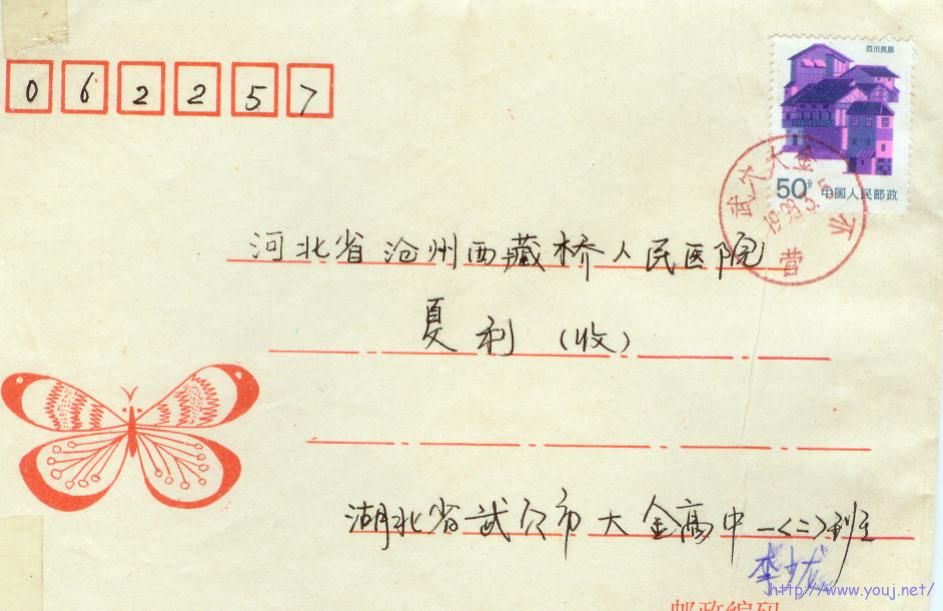 四川民居
062257
50分 中国人民邮政
武穴大金
1998.3.
营
河北省沧州西藏桥人民医院
夏利(收)
湖北省武穴市大金高中一<二>班
李
http://www.youj.net/
邮政编码